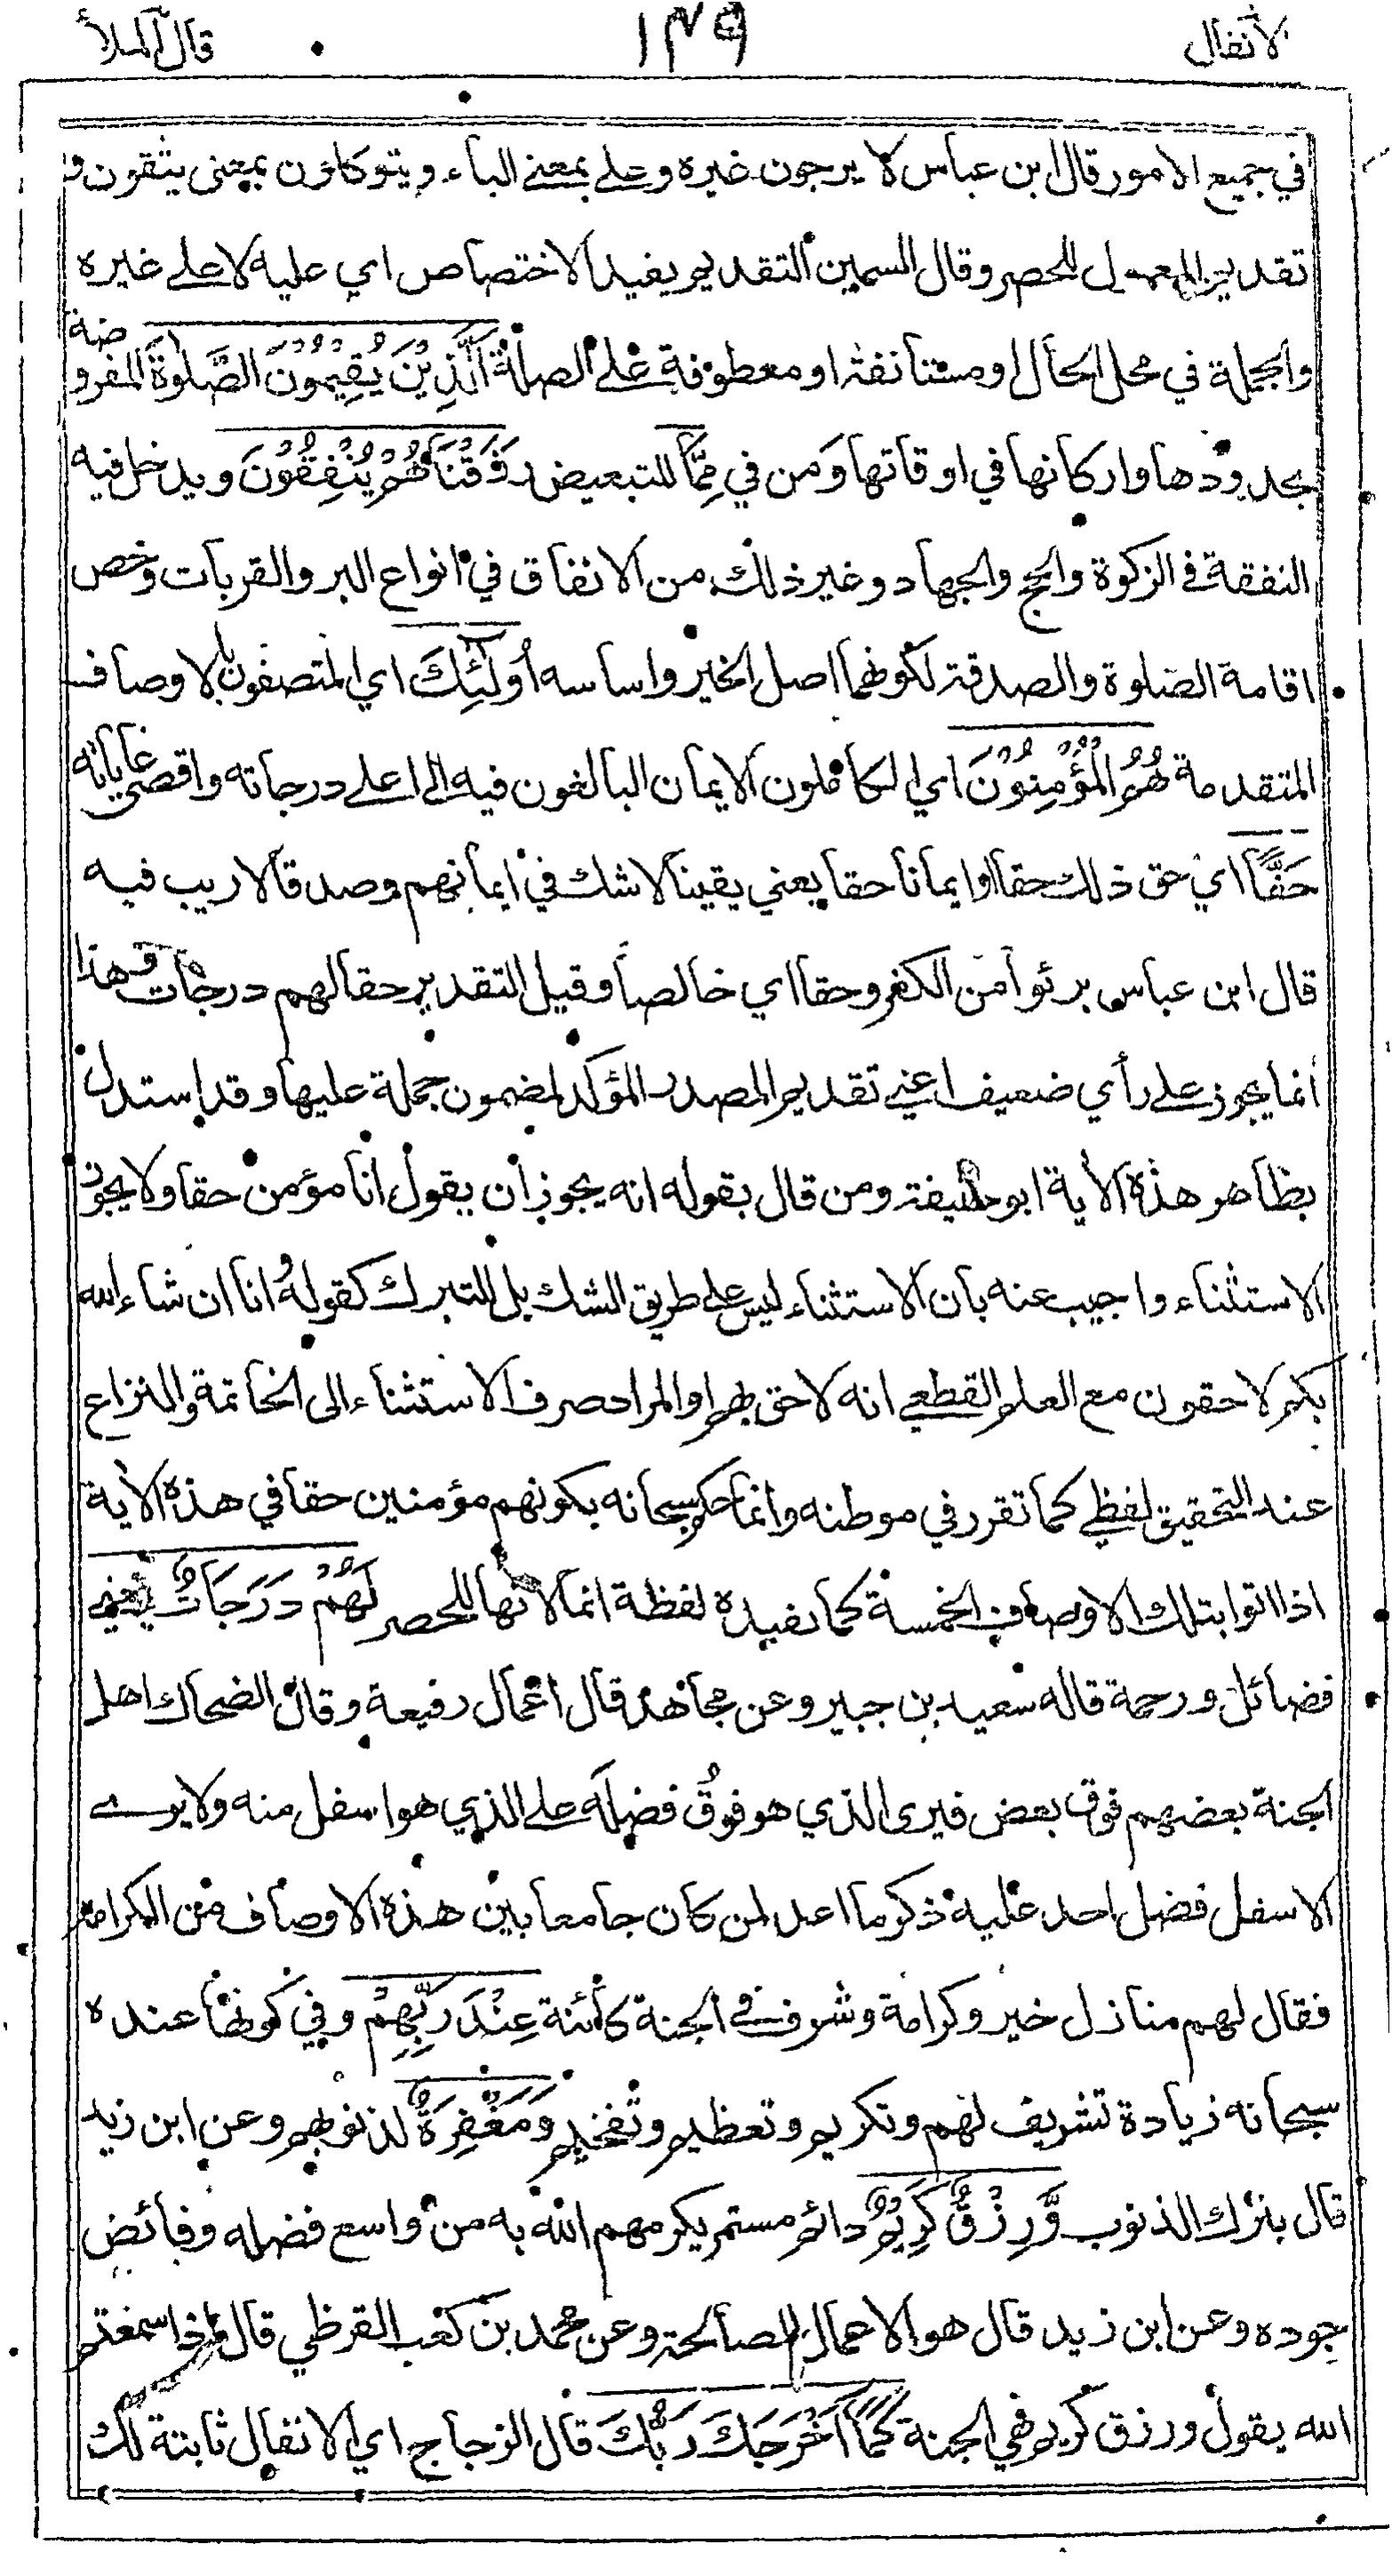 الأنفال
١٣٩
قال الملأ
في جميع الامور قال ابن عباس لا يرجون غيره وعلى بمعنى الباء ويتوكلون بمعنى يثقون و
تقديم المعمول للحصر وقال السمين التقديم يفيد الاختصاص اي عليه لا على غيره
والجملة في محل الحال او مستأنفة او معطوفة على الصلة الَّذِيْنَ يُقِيْمُوْنَ الصَّلٰوةَ المفروضة
بحدودها واركانها في اوقاتها وَمن في مِمَّا للتبعيض رَزَقْنَاهُمْ يُنْفِقُوْنَ ويدخل فيه
النفقة في الزكوة والحج والجهاد وغير ذلك من الانفاق في انواع البر والقربات وخص
اقامة الصلوة والصدقة لكونهما اصل الخير واساسه أُولٰئِكَ اي المتصفون بالاوصاف
المتقدمة هُمُ الْمُؤْمِنُوْنَ اي الكاملون الايمان البالغون فيه الى اعلى درجاته واقصى غاياته
حَقًّا اي حق ذلك حقا او ايمانا حقا يعني يقينا لا شك في ايمانهم وصدقا لا ريب فيه
قال ابن عباس برئوا من الكفر وحقا اي خالصا وقيل التقدير حقا لهم درجات وهذا
انما يجوز على رأي ضعيف اعني تقديم المصدر المؤكد لمضمون جملة عليها وقد استدل
بظاهر هذه الأية ابو حنيفة ومن قال بقوله انه يجوز أن يقول أنا مؤمن حقا ولا يجوز
الاستثناء واجيب عنه بأن الاستثناء ليس على طريق الشك بل للتبرك كقوله وانا ان شاء الله
بكم لاحقون مع العلم القطعي انه لاحق بهم او المراد صرف الاستثناء الى الخاتمة والنزاع
عند التحقيق لفظي كما تقرر في موطنه وانما حكم سبحانه بكونهم مؤمنين حقا في هذه الأية
اذا اتوا بتلك الاوصاف الخمسة كما تفيده لفظة انما لانها للحصر لَهُمْ دَرَجَاتٌ يعني
فضائل ورحمة قاله سعيد بن جبير وعن مجاهد قال اعمال رفيعة وقال الضحاك اهل
الجنة بعضهم فوق بعض فيرى الذي هو فوقُ فضلَه على الذي هو اسفل منه ولا يرى
الاسفل فضل احد عليه ذكر ما اعد لمن كان جامعا بين هذه الاوصاف من الكرامة
فقال لهم منازل خير وكرامة وشرف في الجنة كائنة عِنْدَ رَبِّهِمْ وفي كونها عنده
سبحانه زيادة تشريف لهم وتكريم وتعظيم وتفخيم وَمَغْفِرَةٌ لذنوبهم وعن ابن زيد
قال بترك الذنوب وَّرِزْقٌ كَرِيْمٌ دائم مستمر يكرمهم الله به من واسع فضله وفائض
جوده وعن ابن زيد قال هو الاعمال الصالحة وعن محمد بن كعب القرظي قال اذا سمعتم
الله يقول ورزق كريم فهي الجنة كَمَا أَخْرَجَكَ رَبُّكَ قال الزجاج اي الانفال ثابتة لك